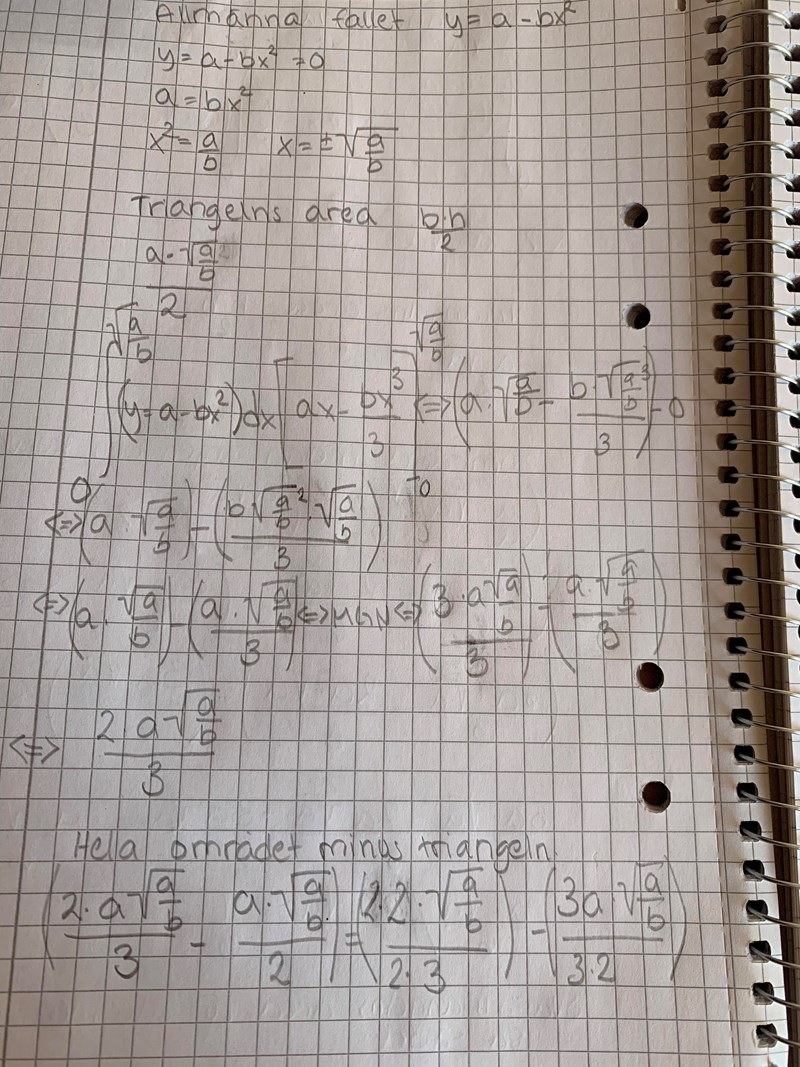 Allmänna fallet y = a - bx²
y = a - bx² = 0
a = bx²
x² = a/b x = ±√(a/b)
Triangelns area b·h/2
a·√(a/b) / 2
∫₀^√(a/b) (y = a - bx²)dx [ax - bx³/3]₀^√(a/b) <=> (a·√(a/b) - b·√(a/b)³/3) - 0
<=> (a·√(a/b)) - (b√(a/b)²·√(a/b)/3)
<=> (a·√(a/b)) - (a·√(a/b)/3) <=> MGN <=> (3·a√(a/b)/3) - (a·√(a/b)/3)
<=> 2 a√(a/b) / 3
Hela området minus triangeln
(2·a√(a/b)/3 - a·√(a/b)/2) = (2·2·√(a/b)/2·3) - (3a·√(a/b)/3·2)